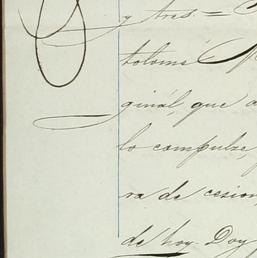 y tres.=
tolome
ginál, que
lo compulse,
ra de cesion,
de hoy. Doy